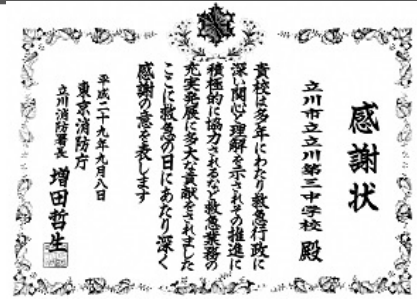 感謝状
立川市立立川第三中学校 殿
貴校は多年にわたり救急行政に
深い関心と理解を示されその推進に
積極的に協力されるなど救急業務の
充実発展に多大な貢献をされました
ここに救急の日にあたり深く
感謝の意を表します
平成二十九年九月八日
東京消防庁
立川消防署長 増田哲生